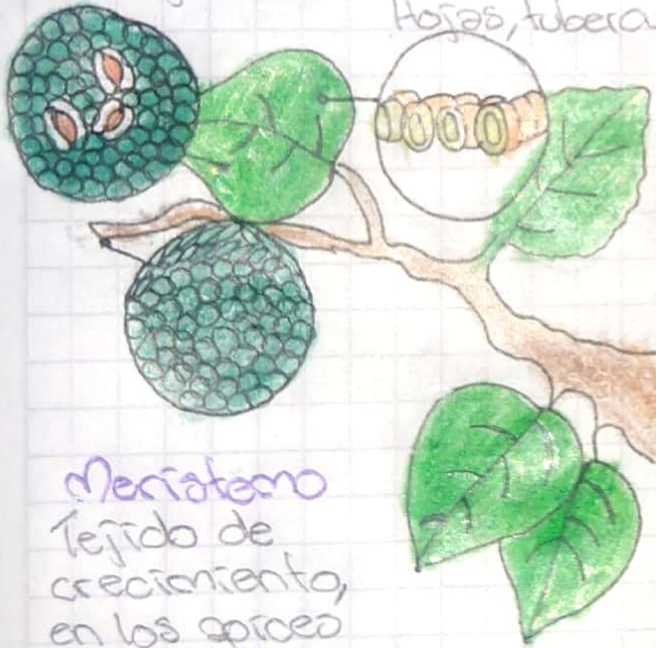 Hojas, tubera
Meristemo
Tejido de
crecimiento,
en los apices